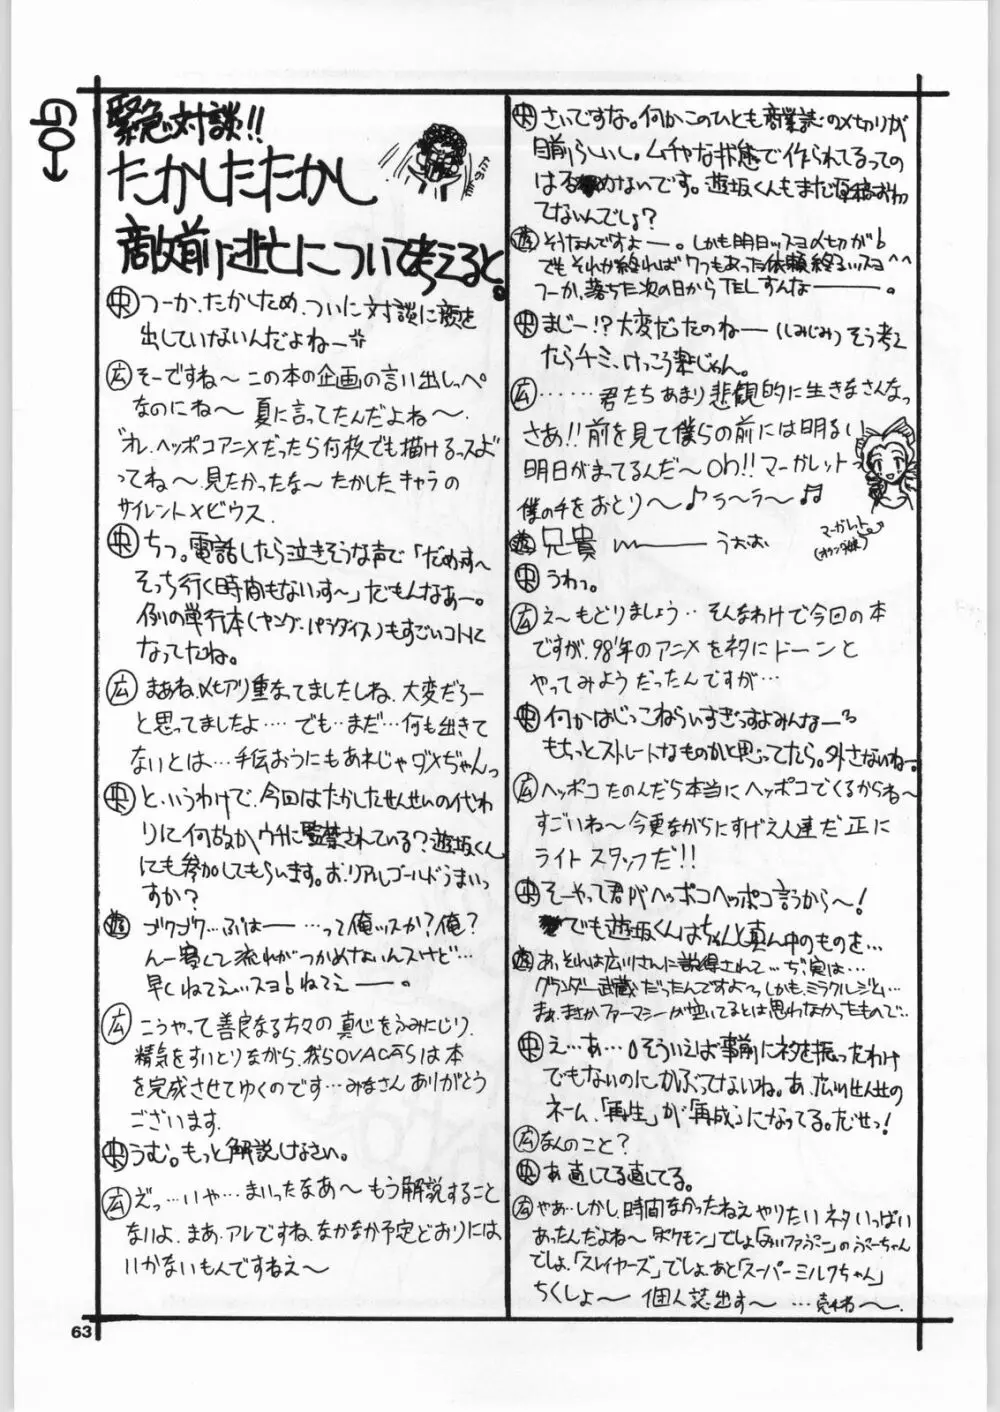 GO→
緊急対談!!
たかしたたかし
敵前逃亡について考えると。
央 つーか、たかしため、ついに対談に顔を
出していないんだよねー
広 そーですね〜 この本の企画の言い出しっぺ
なのにね〜 夏に言ってたんだよね〜。
"オレ、ヘッポコアニメだったら何枚でも描けるっスよ"
ってね〜 見たかったな〜 たかしたキャラの
サイレントメビウス.
央 ちっ。電話したら泣きそうな声で「だめっす〜
そっち行く時間もないっす〜」だもんなぁー。
例の単行本(ヤング・パラダイス)もすごいコトに
なってたね。
広 まぁね、〆切り重なってましたしね、大変だろー
と思ってましたよ‥‥ でも‥まだ…何も出きて
ないとは… 手伝おうにもあれじゃダメぢゃんっ
央 と、いうわけで、今回はたかしたせんせいの代わ
りに何故かウチに監禁されている?遊坂くん
にも参加してもらいます。お、リアルゴールドうまいっ
すか?
遊 ゴクゴク…ぷはー …って俺ッスか?俺?
んー寒くて流れがつかめないんスけど…
早くねてえッスヨ!ねてえー。
広 こうやって善良なる方々の真心をふみにじり、
精気をすいとりながら、我らOVACASは本
を完成させてゆくのです…みなさんありがとう
ございます.
央 うむ。もっと解説しなさい。
広 えっ…いや…まいったなあ〜 もう解説すること
ないよ、まあ、アレですね、なかなか予定どおりには
いかないもんですねえ〜
央 さいですな。何かこのひとも商業誌の〆切りが
目前らしいし。ムチャな状態で作られてるっての
は否めないです。遊坂くんもまだ原稿おわっ
てないんでしょ?
遊 そうなんですよー。しかも明日ッスヨ〆切が
でもそれが終れば7つもあった依頼終るッスヨ^^
つーか、落ちた次の日からTELすんなー。
央 まじー!?大変だったのねー(しみじみ)そう考え
たらチミ、けっこう楽じゃん。
広 ‥‥‥君たちあまり悲観的に生きなさんなっ
さあ!!前を見て僕らの前には明るい
明日がまってるんだ〜Oh!!マーガレットっ
僕の手をおとり〜♪ラ〜ラ〜♫
マーガレット
遊 兄貴ー うおお
央 うわっ。
広 え〜もどりましょう‥そんなわけで今回の本
ですが、98'年のアニメをネタにドーンと
やってみようだったんですが…
央 何かはじっこねらいすぎっすよみんなー
もちっとストレートなものかと思ってたら。外さないねー。
広 ヘッポコたのんだら本当にヘッポコでくるからね〜
すごいね〜今更ながらにすげえ人達だ 正に
ライトスタッフだ!!
央 そーやって君がヘッポコヘッポコ言うから〜!
でも遊坂くんはちゃんと真ん中のものを…
遊 あ、それは広川さんに説得されて…ぢ、実は…
グランダー武蔵だったんですよ〜っしかも、ミラクルジム…
まぁ、まさかファーマシーが空いてるとは思わなかったもので‥
央 え…あ…そういえば事前にネタを振ったわけ
でもないのに、かぶってないね。あ、広川せんせの
ネーム、「再生」が「再成」になってる。だせっ!
広 なんのこと?
央 あ 直してる直してる。
広 やぁ…しかし、時間なかったねえ やりたいネタいっぱい
あったんだよね〜 「ポケモン」でしょ「みいファぷー」のぷーちゃん
でしょ、「スレイヤーズ」でしょ、あと「スーパーミルクちゃん」
ちくしょ〜 個人誌出す〜 …売れね〜.
63